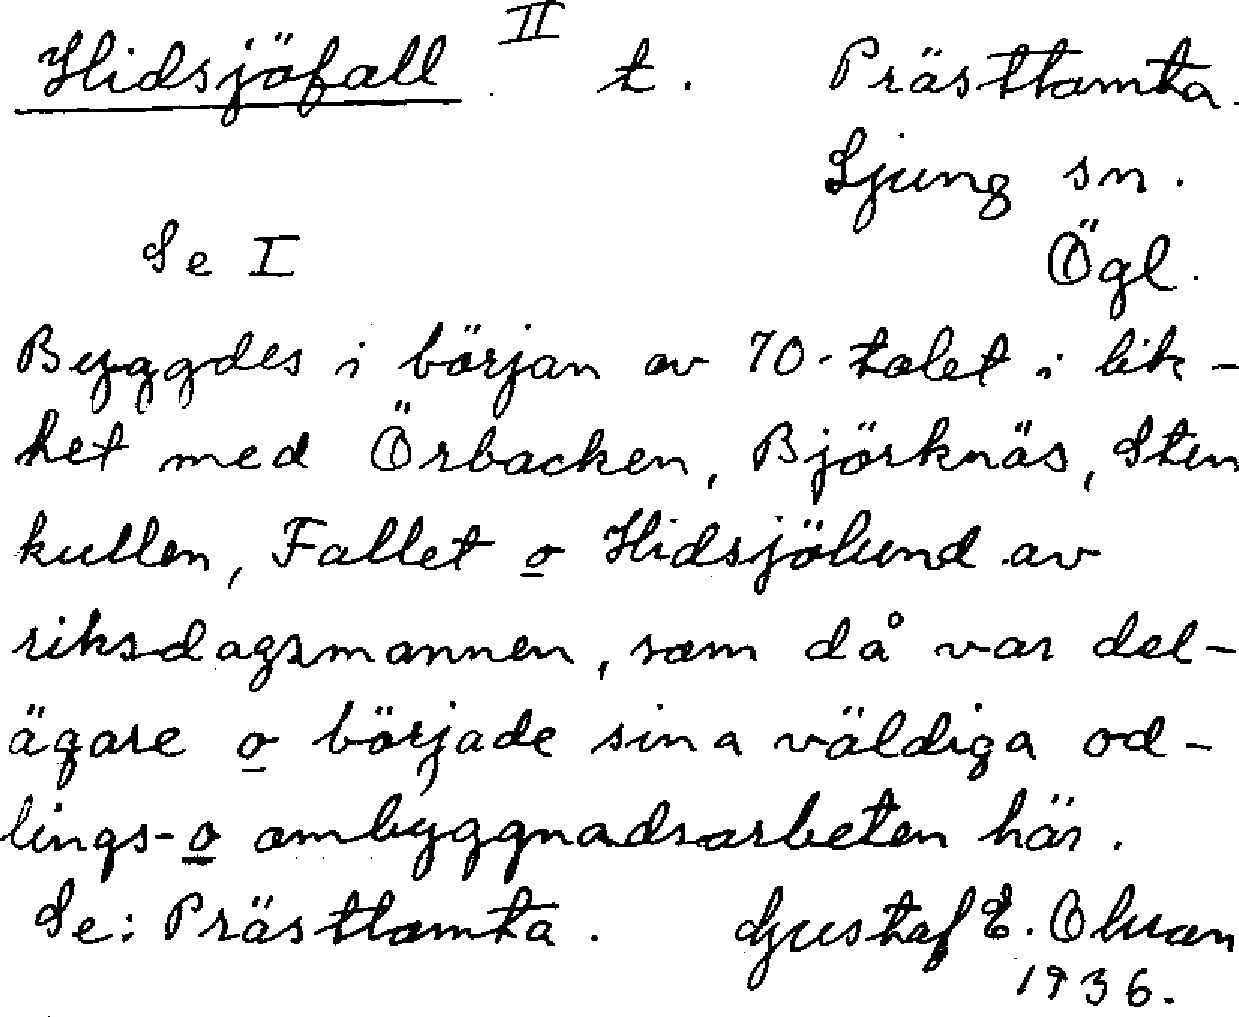 Hidsjöfall II t. Prästtomta.
Ljung sn.
Se I Ögl.
Byggdes i början av 70-talet i lik-
het med Örbacken, Björknäs, Sten
kullen, Fallet o Hidsjölund av
riksdagsmannen, som då var del-
ägare o började sina väldiga od-
lings- o ombyggnadsarbeten här.
Se: Prästtomta. Gustaf E. Olsson
1936.